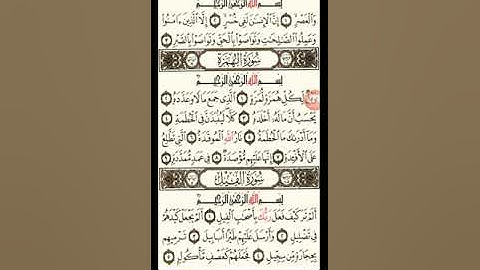 بِسْمِ اللَّهِ الرَّحْمَٰنِ الرَّحِيمِ
وَالْعَصْرِ ١ إِنَّ الْإِنسَانَ لَفِي خُسْرٍ ٢ إِلَّا الَّذِينَ ءَامَنُوا
وَعَمِلُوا الصَّالِحَاتِ وَتَوَاصَوْا بِالْحَقِّ وَتَوَاصَوْا بِالصَّبْرِ ٣
سُورَةُ الْهُمَزَةِ
بِسْمِ اللَّهِ الرَّحْمَٰنِ الرَّحِيمِ
لِّكُلِّ هُمَزَةٍ لُّمَزَةٍ ١ الَّذِي جَمَعَ مَالًا وَعَدَّدَهُ ٢
يَحْسَبُ أَنَّ مَالَهُ أَخْلَدَهُ ٣ كَلَّا لَيُنبَذَنَّ فِي الْحُطَمَةِ ٤
وَمَا أَدْرَاكَ مَا الْحُطَمَةُ ٥ نَارُ اللَّهِ الْمُوقَدَةُ ٦ الَّتِي تَطَّلِعُ
عَلَى الْأَفْئِدَةِ ٧ إِنَّهَا عَلَيْهِم مُّؤْصَدَةٌ ٨ فِي عَمَدٍ مُّمَدَّدَةٍ ٩
سُورَةُ الْفِيلِ
بِسْمِ اللَّهِ الرَّحْمَٰنِ الرَّحِيمِ
أَلَمْ تَرَ كَيْفَ فَعَلَ رَبُّكَ بِأَصْحَابِ الْفِيلِ ١ أَلَمْ يَجْعَلْ كَيْدَهُمْ
فِي تَضْلِيلٍ ٢ وَأَرْسَلَ عَلَيْهِمْ طَيْرًا أَبَابِيلَ ٣ تَرْمِيهِم
بِحِجَارَةٍ مِّن سِجِّيلٍ ٤ فَجَعَلَهُمْ كَعَصْفٍ مَّأْكُولٍ ٥